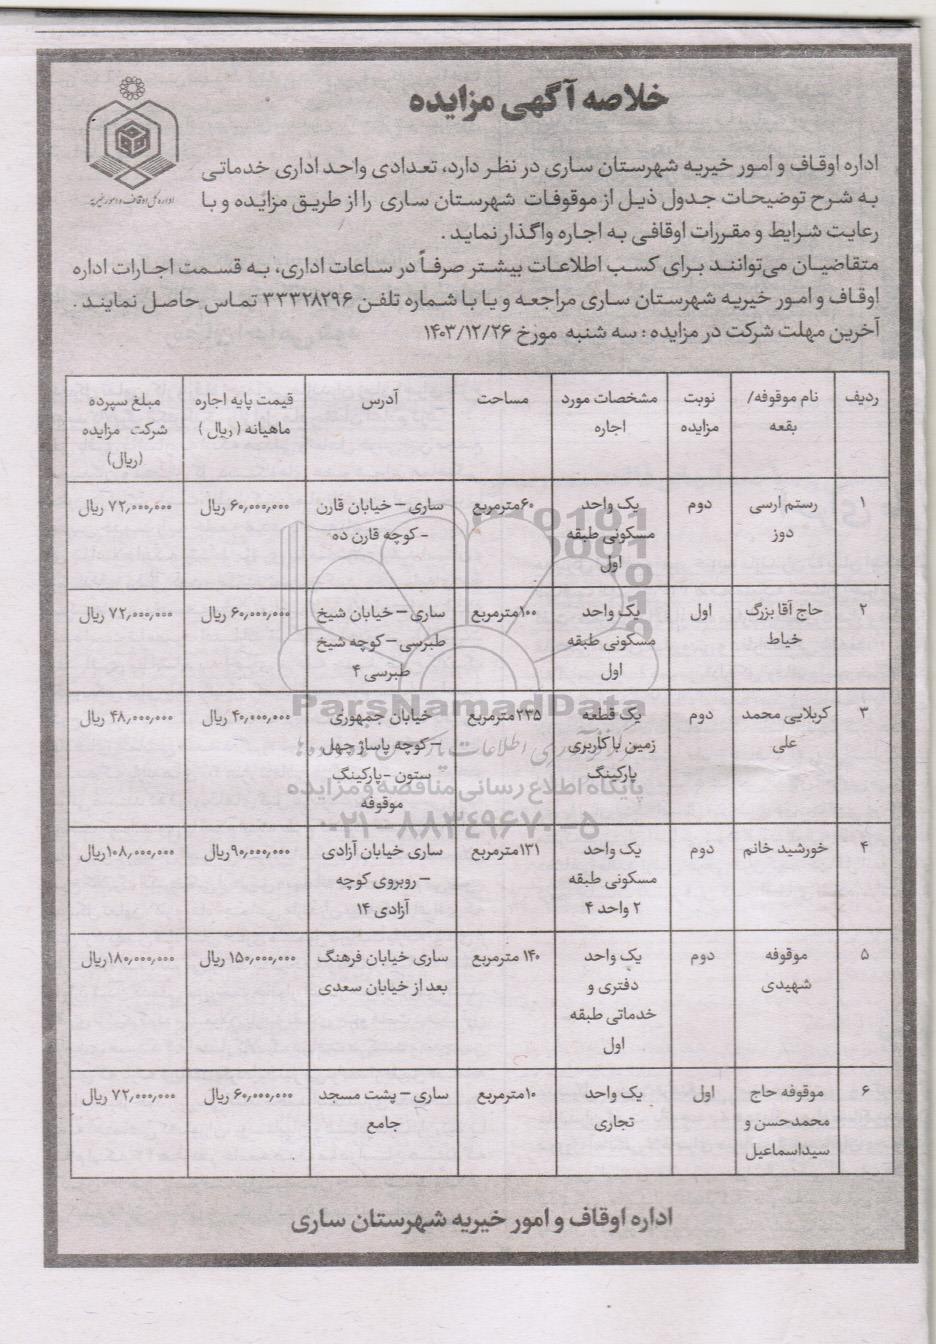 خلاصه آگهی مزایده
اداره کل اوقاف و امور خیریه
اداره اوقاف و امور خیریه شهرستان ساری در نظر دارد، تعدادی واحد اداری خدماتی
به شرح توضیحات جدول ذیل از موقوفات شهرستان ساری را از طریق مزایده و با
رعایت شرایط و مقررات اوقافی به اجاره واگذار نماید .
متقاضیان می‌توانند برای کسب اطلاعات بیشتر صرفاً در ساعات اداری، به قسمت اجارات اداره
اوقاف و امور خیریه شهرستان ساری مراجعه و یا با شماره تلفن ۳۳۳۲۸۲۹۶ تماس حاصل نمایند .
آخرین مهلت شرکت در مزایده : سه شنبه مورخ ۱۴۰۳/۱۲/۲۶
ردیف | نام موقوفه/ بقعه | نوبت مزایده | مشخصات مورد اجاره | مساحت | آدرس | قیمت پایه اجاره ماهیانه ( ریال ) | مبلغ سپرده شرکت مزایده (ریال)
۱ | رستم ارسی دوز | دوم | یک واحد مسکونی طبقه اول | ۶۰مترمربع | ساری – خیابان قارن - کوچه قارن ده | ۶۰,۰۰۰,۰۰۰ ریال | ۷۲,۰۰۰,۰۰۰ ریال
۲ | حاج آقا بزرگ خیاط | اول | یک واحد مسکونی طبقه اول | ۱۰۰مترمربع | ساری – خیابان شیخ طبرسی – کوچه شیخ طبرسی ۴ | ۶۰,۰۰۰,۰۰۰ ریال | ۷۲,۰۰۰,۰۰۰ ریال
۳ | کربلایی محمد علی | دوم | یک قطعه زمین با کاربری پارکینگ | ۲۳۵مترمربع | خیابان جمهوری – کوچه پاساژ چهل ستون -پارکینگ موقوفه | ۴۰,۰۰۰,۰۰۰ ریال | ۴۸,۰۰۰,۰۰۰ ریال
۴ | خورشید خانم | دوم | یک واحد مسکونی طبقه ۲ واحد ۴ | ۱۳۱مترمربع | ساری خیابان آزادی – روبروی کوچه آزادی ۱۴ | ۹۰,۰۰۰,۰۰۰ریال | ۱۰۸,۰۰۰,۰۰۰ریال
۵ | موقوفه شهیدی | دوم | یک واحد دفتری و خدماتی طبقه اول | ۱۴۰ مترمربع | ساری خیابان فرهنگ بعد از خیابان سعدی | ۱۵۰,۰۰۰,۰۰۰ ریال | ۱۸۰,۰۰۰,۰۰۰ریال
۶ | موقوفه حاج محمدحسن و سیداسماعیل | اول | یک واحد تجاری | ۱۰مترمربع | ساری – پشت مسجد جامع | ۶۰,۰۰۰,۰۰۰ ریال | ۷۲,۰۰۰,۰۰۰ ریال
ParsNamadData
پایگاه اطلاع رسانی مناقصه و مزایده
۰۲۱-۸۸۳۴۹۶۷۰-۵
اداره اوقاف و امور خیریه شهرستان ساری